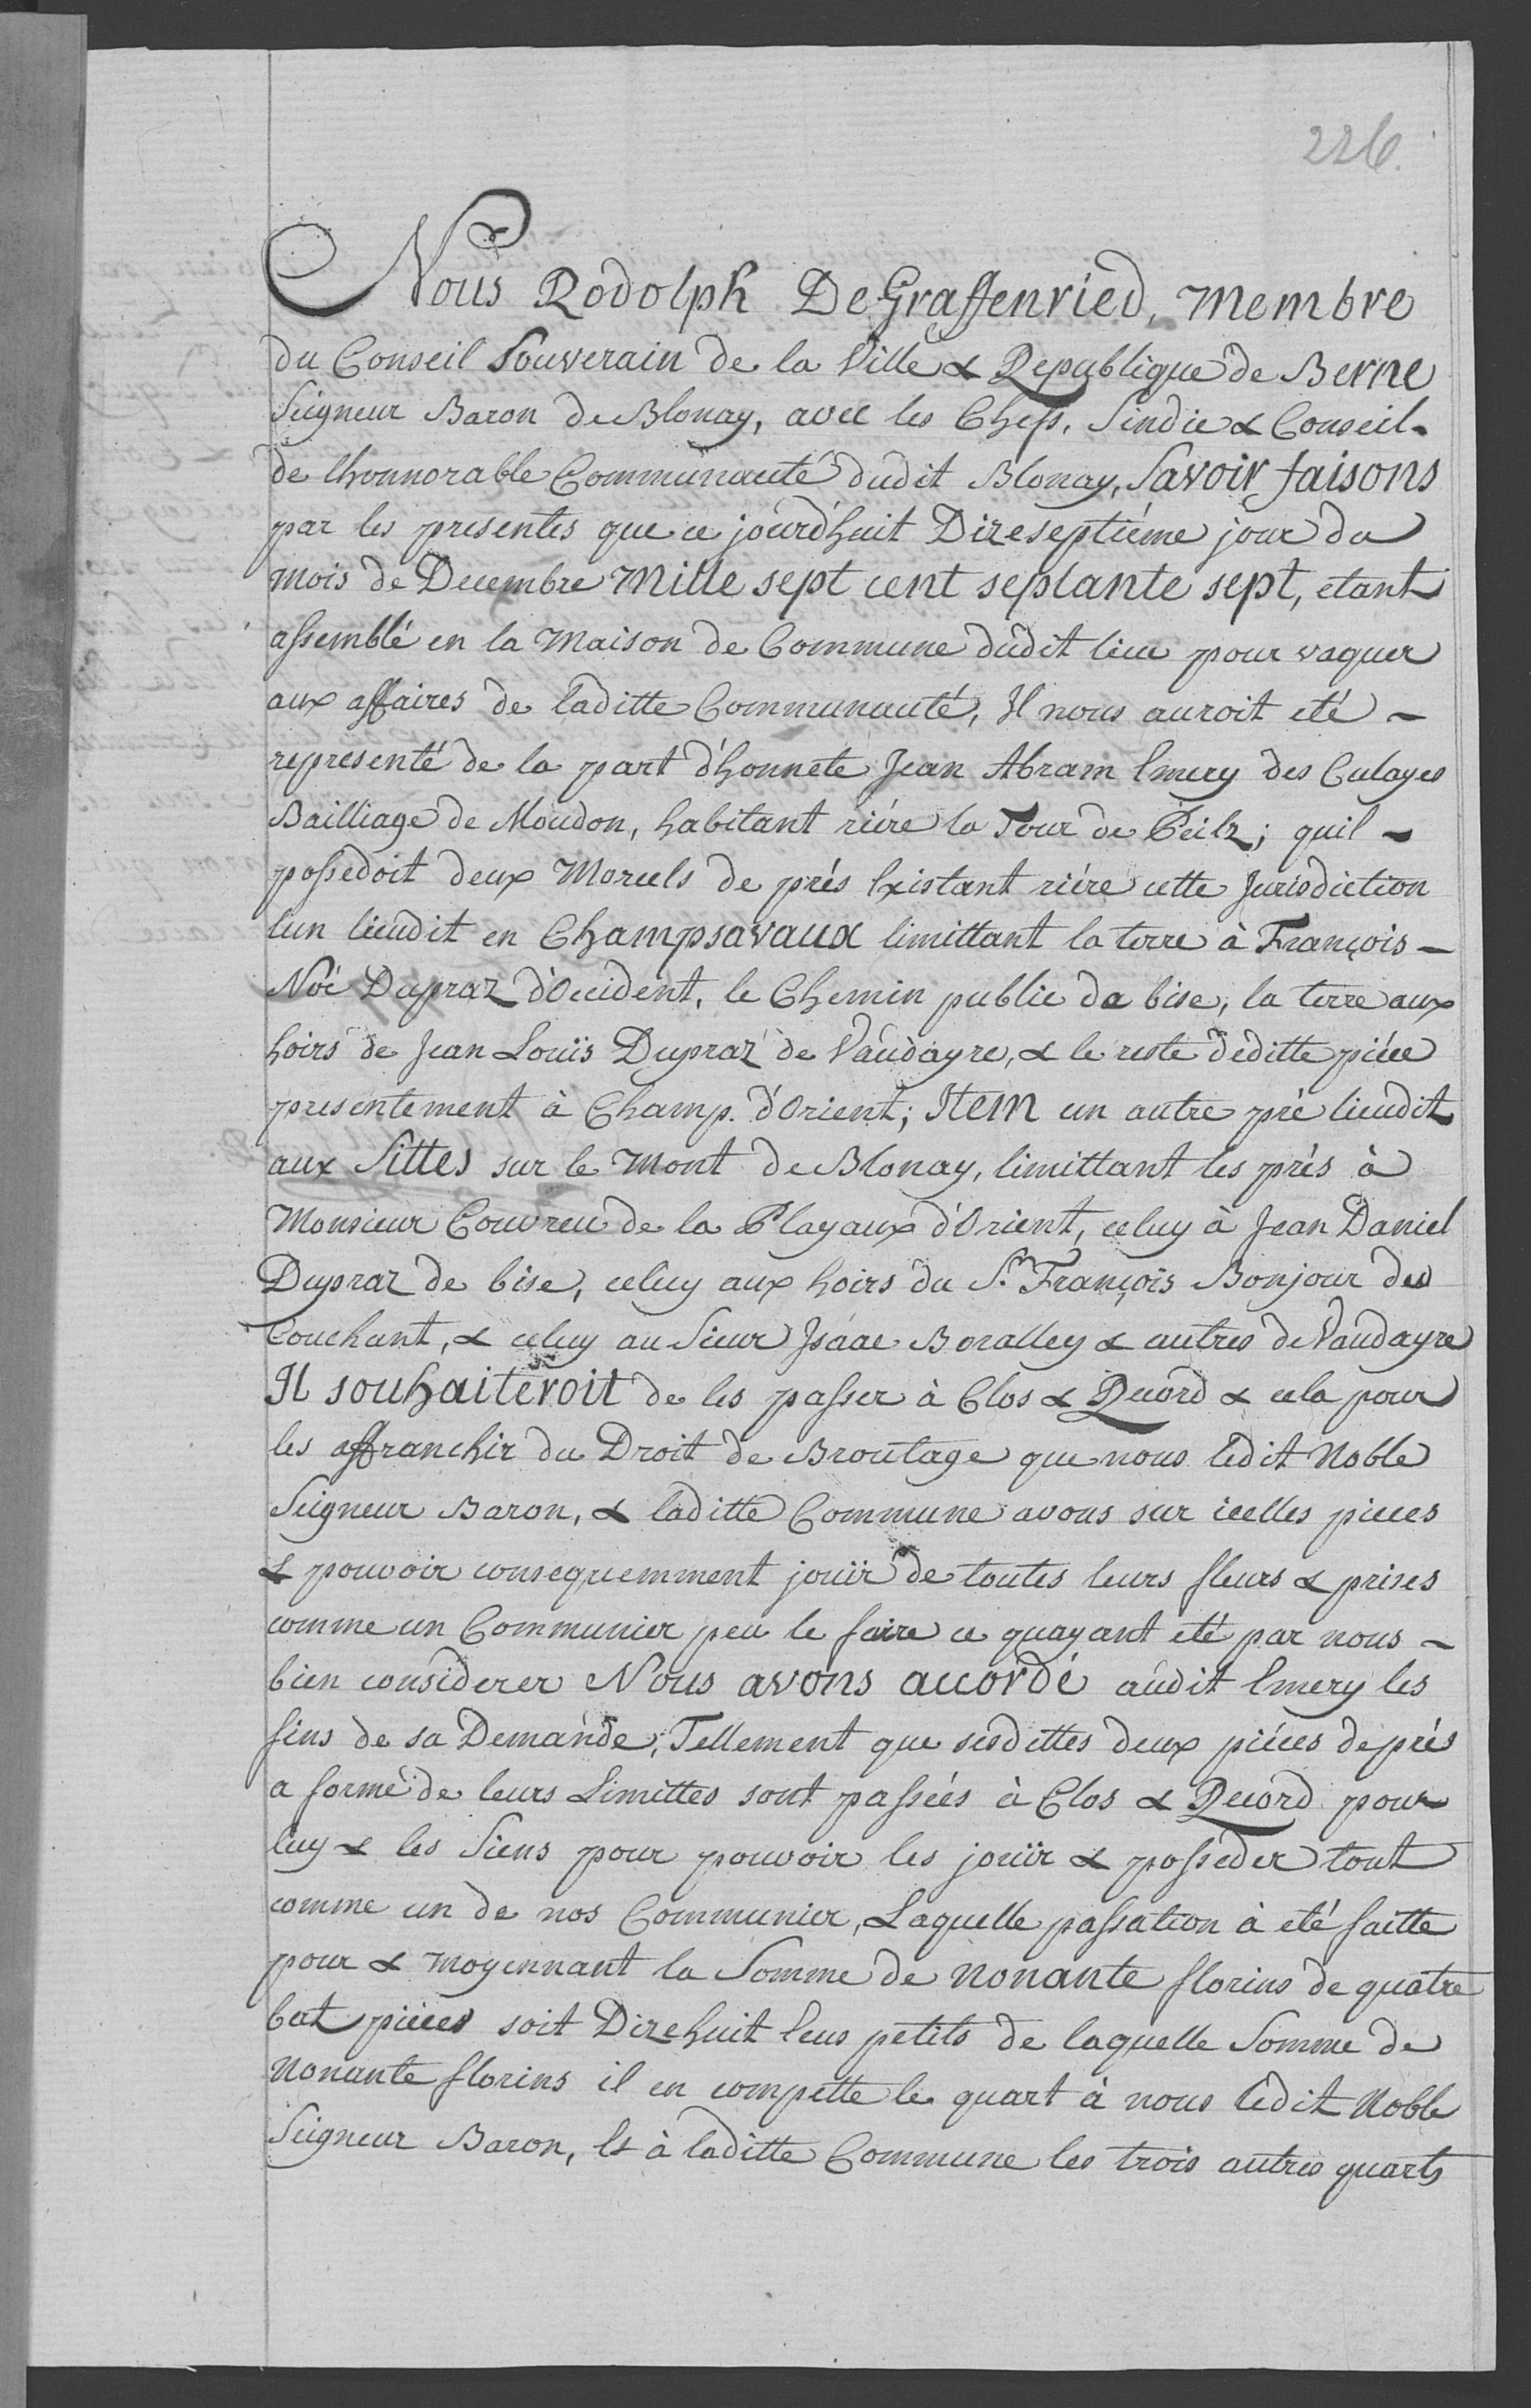 226.
Nous Rodolph DeGraffenried, Membre
du Conseil Souverain de la Ville & Republique de Berne
Seigneur Baron de Blonay, avec les Chefs, Sindic & Conseil
de lhonnorable Communauté dudit Blonay, Savoir faisons
par les presentes que ce jourd'huit Dizeseptiéme jour du
mois de Decembre Mille sept cent septante sept, etant
assemblé en la Maison de Commune dudit lieu pour vaquer
aux affaires de laditte Communauté, Il nous auroit eté -
representé de la part d'honnete Jean Abram Emery des Culayes
Bailliage de Moudon, habitant riére la Tour de Peilz; quil -
possedoit deux Morcels de prés Existant riére cette Jurisdiction
lun lieudit en Champsavaux limittant la terre à François -
Noé Dupraz d'Occident, le Chemin public de bise, la terre aux
hoirs de Jean Louïs Dupraz de Vaudayre, & le reste deditte piéce
presentement à Champ. d'Orient; Item un autre pré lieudit
aux Sittes sur le Mont de Blonay, limittant les prés à
Monsieur Couvreu de la Playaux d'Orient, celuy à Jean Daniel
Dupraz de bise, celuy aux hoirs du Sr. François Bonjour du
Couchant, & celuy au Sieur Isaac Boralley & autres de Vaudayre
Il souhaiteroit de les passer à Clos & Record & cela pour
les affranchir du Droit de Broutage que nous ledit Noble
Seigneur Baron, & laditte Commune avons sur icelles pieces
& pouvoir consequemment jouïr de toutes leurs fleurs & prises
comme un Communier peu le faire ce quayant eté par nous -
bien considerer Nous avons accordé audit Emery les
fins de sa Demande, Tellement que sesdittes deux piéces de prés
a forme de leurs Limittes sont passées à Clos & Record pour
luy & les Siens pour pouvoir les jouïr & posseder tout
comme un de nos Communier, Laquelle passation à eté faitte
pour & moyennant la Somme de nonante florins de quatre
bat piéces soit Dizehuit Ecus petits de laquelle Somme de
Nonante florins il en compette le quart à nous ledit Noble
Seigneur Baron, Et à laditte Commune les trois autres quarts